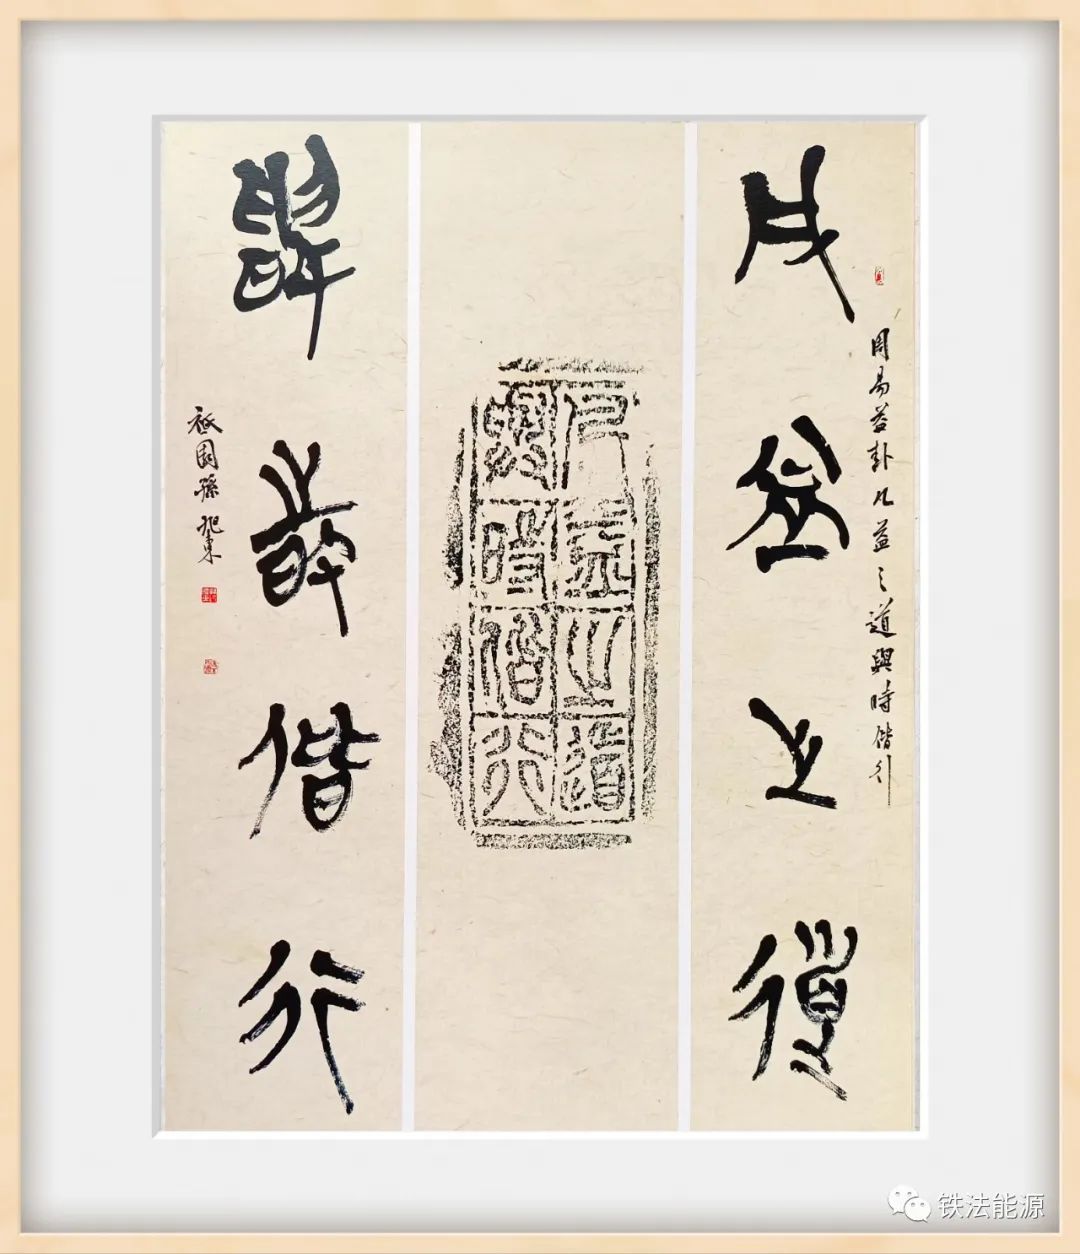 凡益之道
周易益卦凡益之道與時偕行
凡益之道
與時偕行
與時偕行
園孫
铁法能源